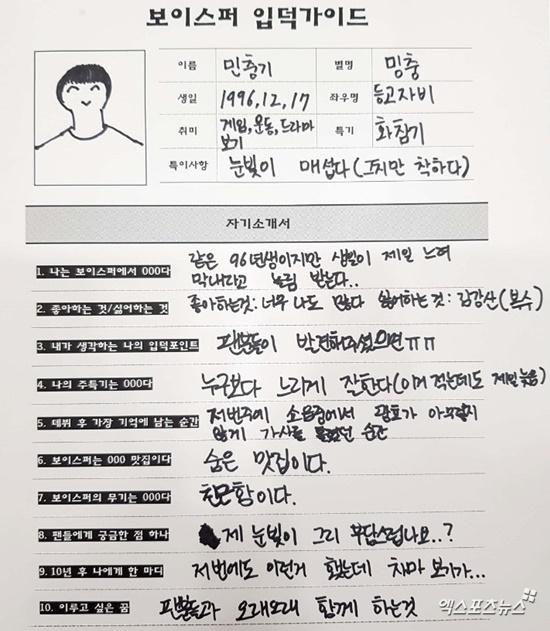 보이스퍼 입덕가이드
이름 민충기 별명 밍충
생일 1996.12.17 좌우명 등고자비
취미 게임,운동,드라마 보기 특기 화잠기
특이사항 눈빛이 매섭다(그치만 착하다)
자기소개서
1. 나는 보이스퍼에서 000다 같은 96년생이지만 생일이 제일 느려
막내라고 놀림 받는다..
2. 좋아하는 것/싫어하는 것 좋아하는것: 너무나도 많다 싫어하는것: 김강산(복수)
3. 내가 생각하는 나의 입덕포인트 팬분들이 발견해주셨으면ㅠㅠ
4. 나의 주특기는 000다 누구보다 느리게 잘한다(이거 적는데도 제일늦음)
5. 데뷔 후 가장 기억에 남는 순간 저번주에 소음중에서 광호가 아무렇지
않게 가사를 틀렸던 순간
6. 보이스퍼는 000 맛집이다 숨은 맛집이다.
7. 보이스퍼의 무기는 000다 친근함이다.
8. 팬들에게 궁금한 점 하나 제 눈빛이 그리 부담스럽나요..?
9. 10년 후 나에게 한 마디 저번에도 이런거 했는데 차마 보기가...
10. 이루고 싶은 꿈 팬분들과 오래오래 함께 하는것
엑스포츠뉴스